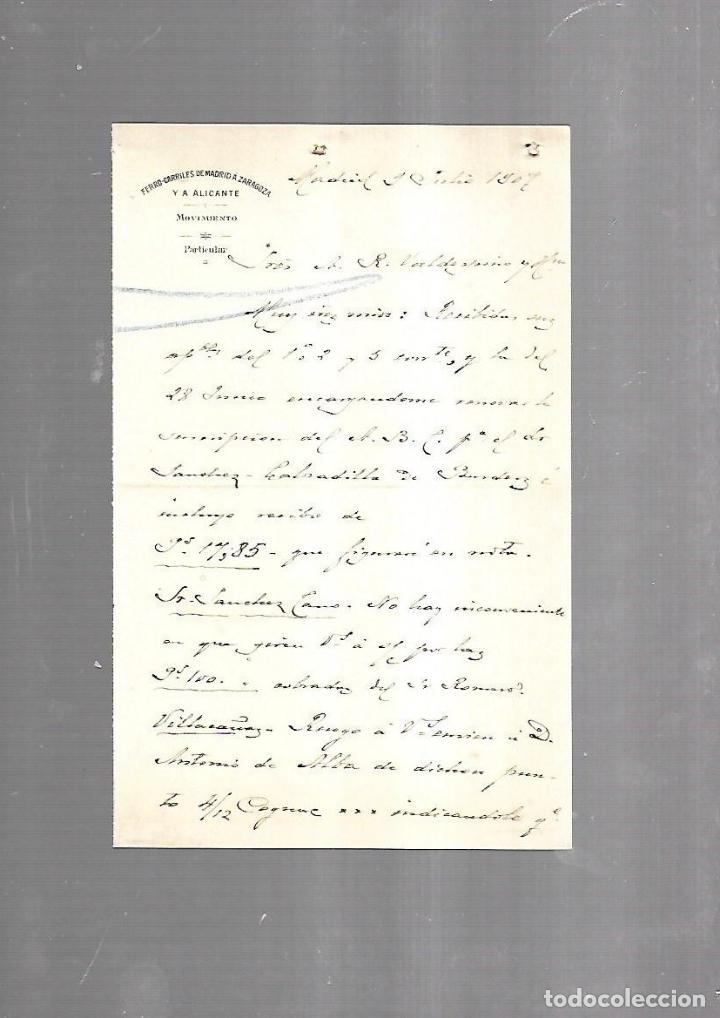 FERRO-CARRILES DE MADRID A ZARAGOZA
Y A ALICANTE
MOVIMIENTO
Particular
Madrid 9 Julio 1907
Sres A. R. Valdespino y Hno
Muy Sres mios: Recibidas sus
del 1º 2 y 5 corrte, y la del
28 Junio encargandome renovar la
suscripcion del A. B. C. pª el Sr
Sanchez-Calzadilla de é
incluyo recibo de
Ps 17,85 - que figurará en nota.
Sr. Sanchez Cano. No hay inconveniente
en que giren Vs á
Ps 100. - cobradas del Sr Romero.
Villacañas - Ruego á Vs envien á D.
Antonio de Alba de dichon pun-
to 4/12 Cognac xxx indicandole qe
todocoleccion.net